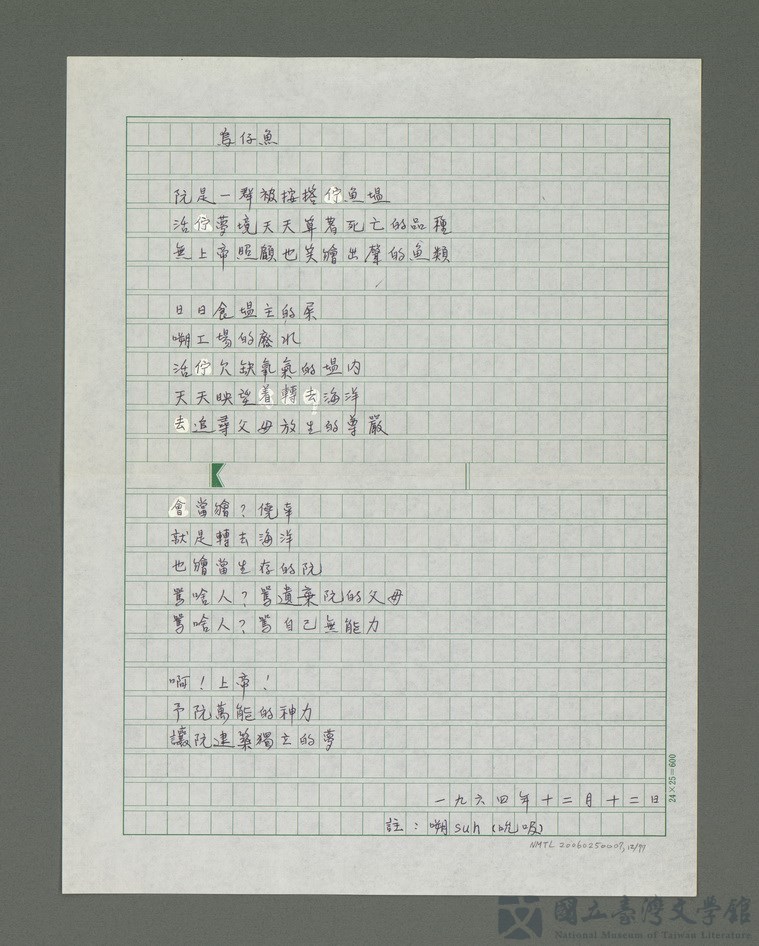 烏仔魚
阮是一群被按搭佇魚塭
活佇夢境天天算著死亡的品種
無上帝照顧也笑嬒出聲的魚類
日日食塭主的屎
嗍工場的廢水
活佇欠缺氧氣的塭內
天天映望着轉去海洋
去追尋父母放生的尊嚴
會當嬒?僥幸
就是轉去海洋
也嬒當生存的阮
罵啥人?罵遺棄阮的父母
罵啥人?罵自己無能力
啊!上帝!
予阮萬能的神力
讓阮建築獨立的夢
一九六四年十二月十二日
註:嗍suh(吮吸)
24×25=600
NMTL 20060250007, 12/97
國立臺灣文學館
National Museum of Taiwan Literature